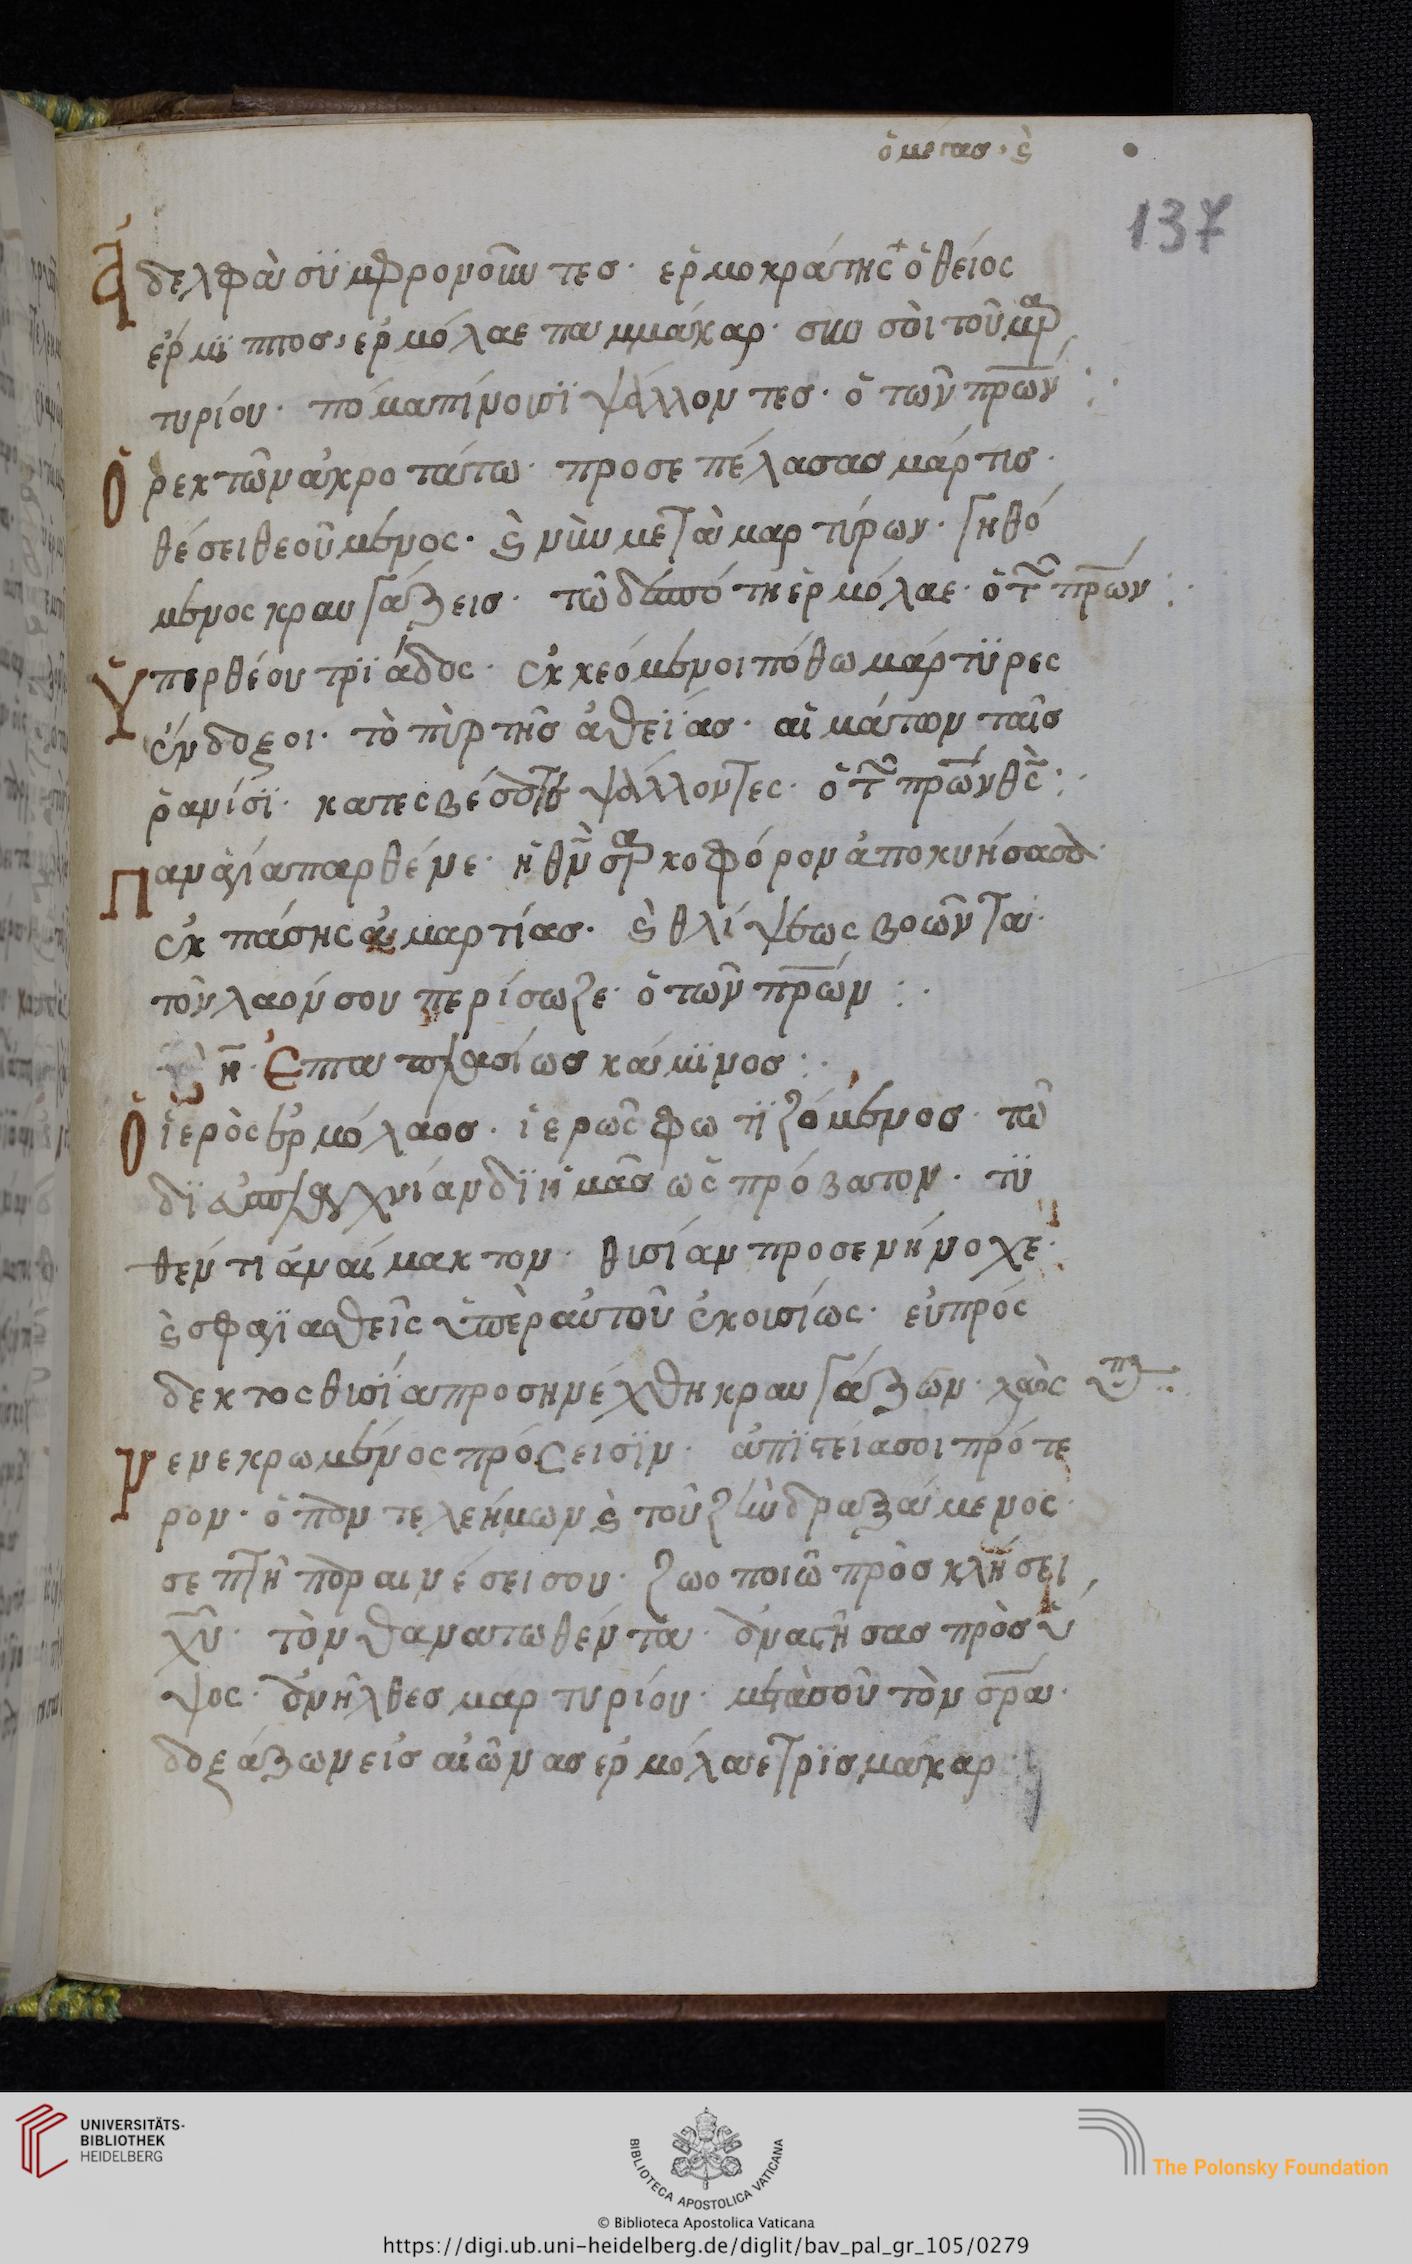 ὁ μέγας· κ(αὶ)
137
Ἀδελφὰ συμφρονοῦντες· ἑρμοκράτης ὁ θεῖος
ἕρμϊππος, ἑρμόλαε παμμάκαρ· σὺν σοὶ τοῦ μαρ
τυρίου· πόμα πίνουσϊ ψάλλοντες· ὁ τῶν πρων :·
Ὀρεκτῶν ἀκροτάτω· προσεπέλασας μάρτις·
θέσει θεούμενος· κ(αὶ) νῦν μετὰ μαρτύρων· γηθό
μενος κραυγάζεις· τῶ δεσπότη ἑρμόλαε· ὁ τ πρων :·
Ὑπερθέου τρϊάδος· ἐκκεόμενοι πόθω μάρτϋρες
ἔνδοξοι· τὸ πῦρ τῆς ἀθεΐας· αἱμάτων ταῖς
ῥανίσϊ· κατεσβέσατε ψάλλοντες· ὁ τ πρων θς :·
Παναγία παρθένε· ἡ θν σαρκοφόρον ἀποκυήσασα·
ἐκ πάσης ἁμαρτίας· κ(αὶ) θλίψεως βοῶντα·
τὸν λαόν σου περίσωζε· ὁ τῶν πρων :·
η· Ἑπταπλασίως κάμϊνος :·
Ὁ ἱερὸς ἑρμόλαος· ἱερῶς φωτϊζόμενος· τῶ
δϊ εὐσπλαγχνίαν δϊ ἡμᾶς ὡς πρόβατον· τϋ
θέντι ἀναίμακτον· θισίαν προσενήνοχε·
κ(αὶ) σφαγϊασθεὶς ὑπὲρ αὐτοῦ ἑκουσίως· εὐπρός
δεκτος θισΐα προσηνέχθη κραυγάζων· λαὸς ὑπ :·
Νενεκρωμένος πρόσεισϊν· ἀπϊστεία σοι πρότε
ρον· ὁ παντελεήμων κ(αὶ) τοῦ ζῆν δραξάμενος·
σε πτῆ παραινέσει σου· ζωοποιῶ πρὸς κλήσει
χυ· τὸν θανατωθέντα· ἀναστήσας πρὸς ὕ
ψος· ἀνῆλθες μαρτυρίου· μετὰ σοῦ τὸν σρα·
δοξάζων εἰς αἰῶνας ἑρμόλαε τρϊσμάκαρ·
UNIVERSITÄTS-
BIBLIOTHEK
HEIDELBERG
BIBLIOTECA APOSTOLICA VATICANA
The Polonsky Foundation
© Biblioteca Apostolica Vaticana
https://digi.ub.uni-heidelberg.de/diglit/bav_pal_gr_105/0279